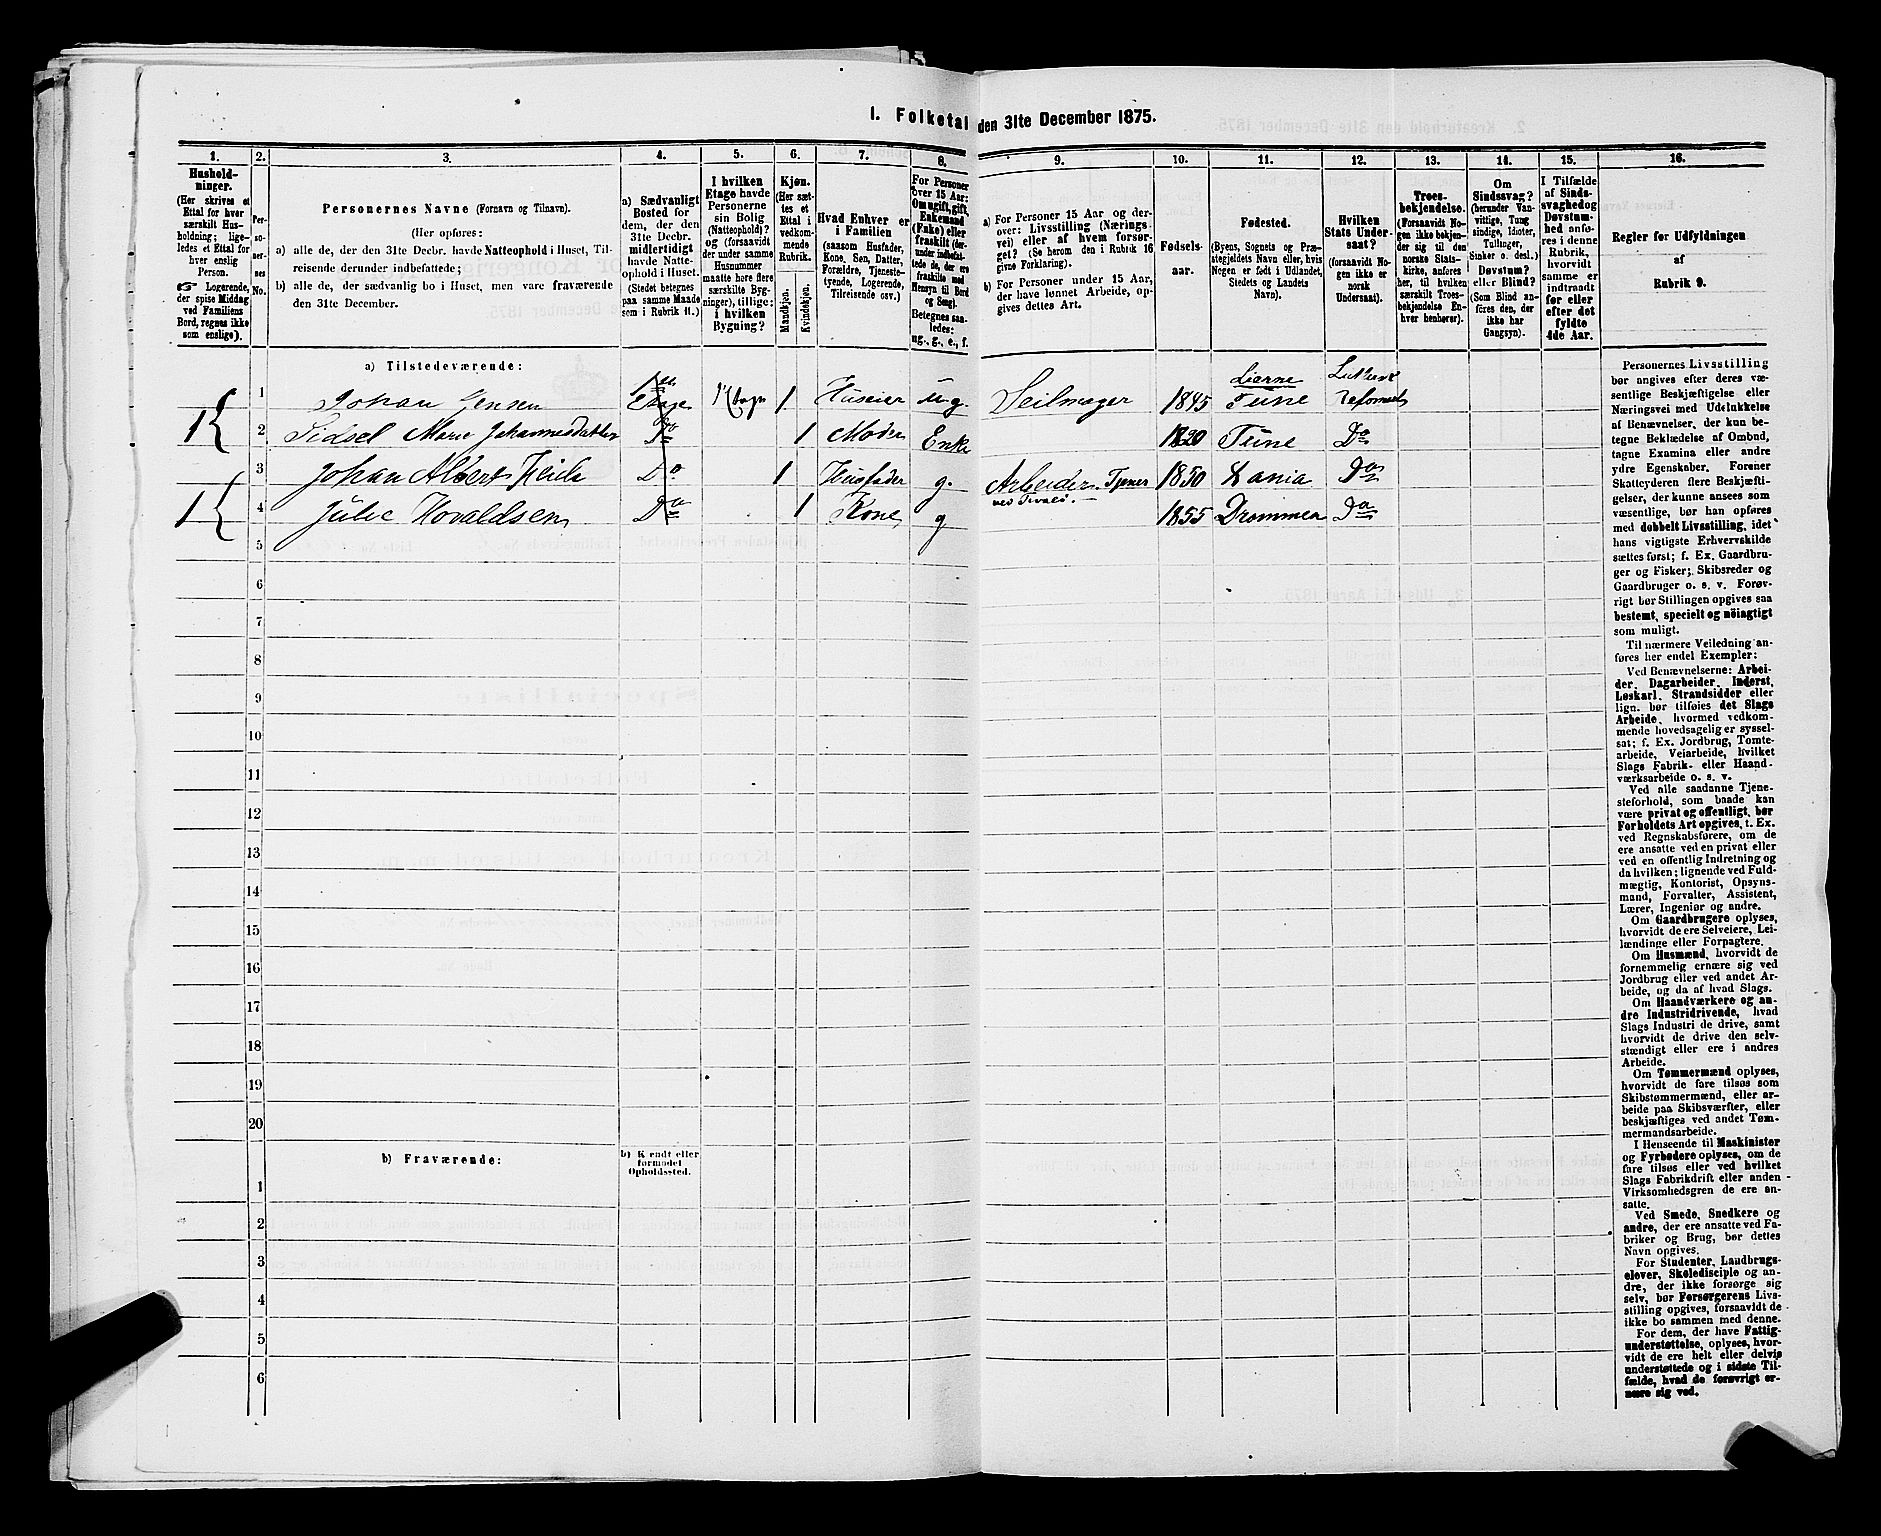 1. Folketal den 31te December 1875.
1. 2. 3. 4. 5. 6. 7. 8. 9. 10. 11. 12. 13. 14. 15. 16.
Hushold-
ninger.
(Her skrives et
Ettal for hver
særskilt Hus-
holdning; lige-
ledes et Ettal for
hver enslig
Person.
☞ Logerende,
der spise Middag
ved Familiens
Bord, regnes ikke
som enslige).
Per-
so-
ner-
nes
No.
Personernes Navne (Fornavn og Tilnavn).
(Her opføres:
a) alle de, der den 31te Decbr. havde Natteophold i Huset, Til-
reisende derunder indbefattede;
b) alle de, der sædvanlig bo i Huset, men vare fraværende
den 31te December.
a) Sædvanligt
Bosted for
dem, der den
31te Decbr.
midlertidigt
havde Natte-
ophold i Huset.
(Stedet betegnes
paa samme Maade
som i Rubrik 11.)
I hvilken
Etage havde
Personerne
sin Bolig
(Natteophold)?
og (forsaavidt
der under samme
Husnummer
maatte høre flere
særskilte Byg-
ninger), tillige:
i hvilken
Bygning?
Kjøn.
(Her sæt-
tes et
Ettal i
vedkom-
mende
Rubrik.
Mandkjøn.
Kvindekjøn.
Hvad Enhver er
i Familien
(saasom Husfader,
Kone, Søn, Datter,
Forældre, Tjeneste-
tyende, Logerende,
Tilreisende osv.)
For Personer
over 15 Aar:
Om ugift, gift,
Enkemand
(Enke) eller
fraskilt (der-
under indbefat-
tede de, der ere
fraskilte med
Hensyn til Bord
og Seng).
Betegnes saa-
ledes:
ug., g., e., f.
a) For Personer 15 Aar og der-
over: Livsstilling (Nærings-
vei) eller af hvem forsør-
get? (Se herom den i Rubrik 16
givne Forklaring).
b) For Personer under 15 Aar,
der have lønnet Arbeide, op-
gives dettes Art.
Fødsels-
aar.
Fødested.
(Byens, Sognets og Præ-
stegjeldets Navn eller, hvis
Nogen er født i Udlandet,
Stedets og Landets
Navn).
Hvilken
Stats Under-
saat?
(forsaavidt No-
gen ikke er
norsk
Undersaat).
Troes-
bekjendelse.
(Forsaavidt No-
gen ikke bekjen-
der sig til den
norske Stats-
kirke, anføres
her, til hvilken
særskilt Troes-
bekjendelse En-
hver henhører).
Om
Sindssvag?
(herunder Van-
vittige, Idioter,
Tullinger,
Sinker o. desl.)
Døvstum?
eller Blind?
(Som Blind an-
føres den, der
ikke har
Gangsyn).
I Tilfælde
af Sinds-
svaghed og
Døvstum-
hed anfø-
res i denne
Rubrik,
hvorvidt
samme er
indtraadt
før eller
efter det
fyldte
4de Aar.
Regler for Udfyldningen
af
Rubrik 9.
a) Tilstedeværende:
1 Johan Jensen 1ste Etage 1 Huseier ug. Seilmager 1845 Tune
1 2 Sidsel Marie Johannesdatter Do 1 Moder Enke 1820 Tune Do
3 Johan Albert Do 1 Husfader g. Arbeider 1850 Do
1 4 Julie Do 1 Kone g 1855 Drammen Do
5
6
7
8
9
10
11
12
13
14
15
16
17
18
19
20
b) Fraværende: b) Kjendt eller
formodet
Opholdssted.
1
2
3
4
5
6
Personernes Livsstilling
bør angives efter deres væ-
sentlige Beskjæftigelse eller
Næringsvei med Udelukkelse
af Benævnelser, der kun be-
tegne Beklædelse af Ombud,
tagne Examina eller andre
ydre Egenskaber. Forener
Skatteyderen flere Beskjæfti-
gelser, der kunne ansees som
væsentlige, bør han opføres
med dobbelt Livsstilling, idet
hans vigtigste Erhvervskilde
sættes først; f. Ex. Gaardbru-
ger og Fisker; Skibsreder og
Gaardbruger o. s. v. Forøv-
rigt bør Stillingen opgives saa
bestemt, specielt og nøiagtigt
som muligt.
Til nærmere Veiledning an-
føres her endel Exempler:
Ved Benævnelserne: Arbei-
der, Dagarbeider, Inderst,
Løskarl, Strandsidder eller
lign. bør tilføies det Slags
Arbeide, hvormed vedkom-
mende hovedsagelig er syssel-
sat; f. Ex. Jordbrug, Tomte-
arbeide, Veiarbeide, hvilket
Slags Fabrik- eller Haand-
værksarbeide o. s. v.
Ved alle saadanne Tjene-
steforhold, som baade kan
være privat og offentligt, bør
Forholdets Art opgives, t. Ex.
ved Regnskabsførere, om de
ere ansatte ved en privat eller
ved en offentlig Indretning og
da hvilken; lignende ved Fuld-
mægtig, Kontorist, Opsyns-
mand, Forvalter, Assistent,
Lærer, Ingeniør og andre.
Om Gaardbrugere oplyses,
hvorvidt de ere Selveiere, Lei-
lændinge eller Forpagtere.
Om Husmænd, hvorvidt de
fornemmelig ernære sig ved
Jordbrug eller ved andet Ar-
beide, og da af hvad Slags.
Om Haandværkere og an-
dre Industridrivende, hvad
Slags Industri de drive, samt
hvorvidt de drive den selv-
stændigt eller ere i andres
Arbeide.
Om Tømmermænd oplyses,
hvorvidt de fare tilsøs som
Skibstømmermænd, eller ar-
beide paa Skibsværfter, eller
beskjæftiges ved andet Tøm-
mermandsarbeide.
I Henseende til Maskinister
og Fyrbødere oplyses, om de
fare tilsøs eller ved hvilket
Slags Fabrikdrift eller anden
Virksomhedsgren de ere an-
satte.
Ved Smede, Snedkere og
andre, der ere ansatte ved Fa-
briker og Brug, bør dettes
Navn opgives.
For Studenter, Landbrugs-
elever, Skoledisciple og an-
dre, der ikke forsørge sig
selv, bør Forsørgerens Livs-
stilling opgives, forsaavidt de
ikke bo sammen med denne.
For dem, der have Fattig-
understøttelse, oplyses, hvor-
vidt de ere helt eller delvis
understøttede og i sidste Til-
fælde, hvad de forøvrigt er-
nære sig ved.